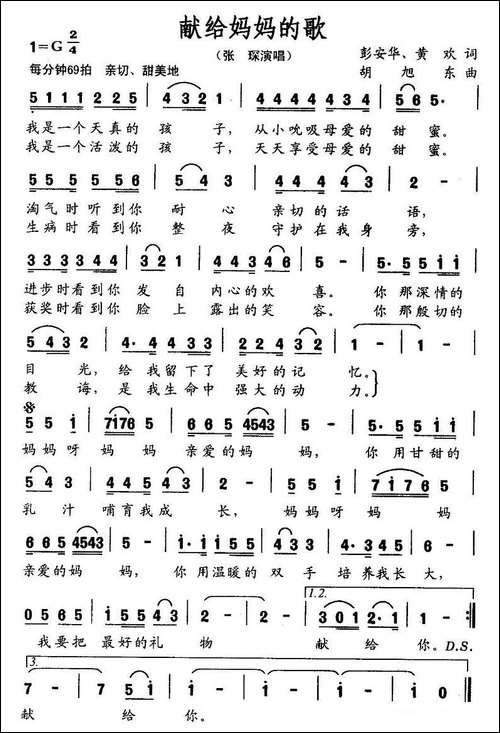 献给妈妈的歌
1=G 2/4
（张 琛演唱）
彭安华、黄 欢 词
每分钟69拍 亲切、甜美地
胡 旭 东 曲
5 1 1 1 2 2 5 | 2· 4 3 2 | 4 4 4 4 4 3 4 | 5 6 5· |
我是一个天真的 孩 子， 从小吮吸母爱的 甜 蜜。
我是一个活泼的 孩 子， 天天享受母爱的 甜 蜜。
5 5 5 5 5 5 6 | 5 4 3 | 4 4 4 4 4 3 | 2 - |
淘气时听到你 耐 心 亲切的话 语，
生病时看到你 整 夜 守护在我身 旁，
3 3 3 3 3 4 4 | 3 2 1 | 4 4 3 4 3 1 | 2 - | 5· 5 5 1 1 |
进步时看到你 发 自 内心的欢 喜。 你 那深情的
获奖时看到你 脸 上 露出的笑 容。 你 那般切的
5 4 3 2 | 4· 4 4 3 3 | 2 4 3 2 | 1 - | 1 - |
目 光， 给 我留下了 美好的记 忆。
教 诲， 是 我生命中 强大的动 力。
5 5 1 | 7 1 7 6 5 | 6 6 5 4 5 4 3 | 5 - | 5· 5 5 1 1 |
妈妈呀 妈 妈 亲爱的妈 妈， 你 用甘甜的
5 4 3 | 2 4 4 3 2 | 5 - | 5 5 1 | 7 1 7 6 5 |
乳 汁 哺育我成 长， 妈妈呀 妈 妈
6 6 5 4 5 4 3 | 5 - | 1· 1 1 5 5 | 5 4 3 3 | 4 3 4 5 6 | 6 - |
亲爱的妈 妈， 你 用温暖的 双 手 培养我长 大，
0 5 6 5 | 1 5 5 4 3 | 2 - | 2 - | 1.2. 3 0 1 2· 1 | 1 - :‖
我要把 最好的礼 物 献 给 你。D.S.
3. 7 - | 7 - | 7 5 1 | 1 - | 1 - | 1 - | 1 0 ‖
献 给 你。